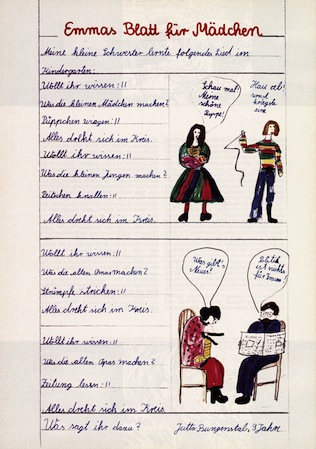 Emmas Blatt für Mädchen
Meine kleine Schwester lernte folgendes Lied im
Kindergarten:
Wollt ihr wissen:||
Was die kleinen Mädchen machen?
Püppchen wiegen:||
Alles dreht sich im Kreis.
Wollt ihr wissen:||
Was die kleinen Jungen machen?
Peitschen knallen:||
Alles dreht sich im Kreis.
Schau mal!
Meine
schöne
Puppe!
Hau ab!
sonst
kriegste
eine
Wollt ihr wissen:||
Was die alten Omas machen?
Strümpfe stricken:||
Alles dreht sich im Kreis.
Wollt ihr wissen:||
Was die alten Opas machen?
Zeitung lesen:||
Alles dreht sich im Kreis.
Was sagt ihr dazu?
Was gibt's
Neues?
ist nichts
für Frauen!
Jutta Bungenstal, 9 Jahre